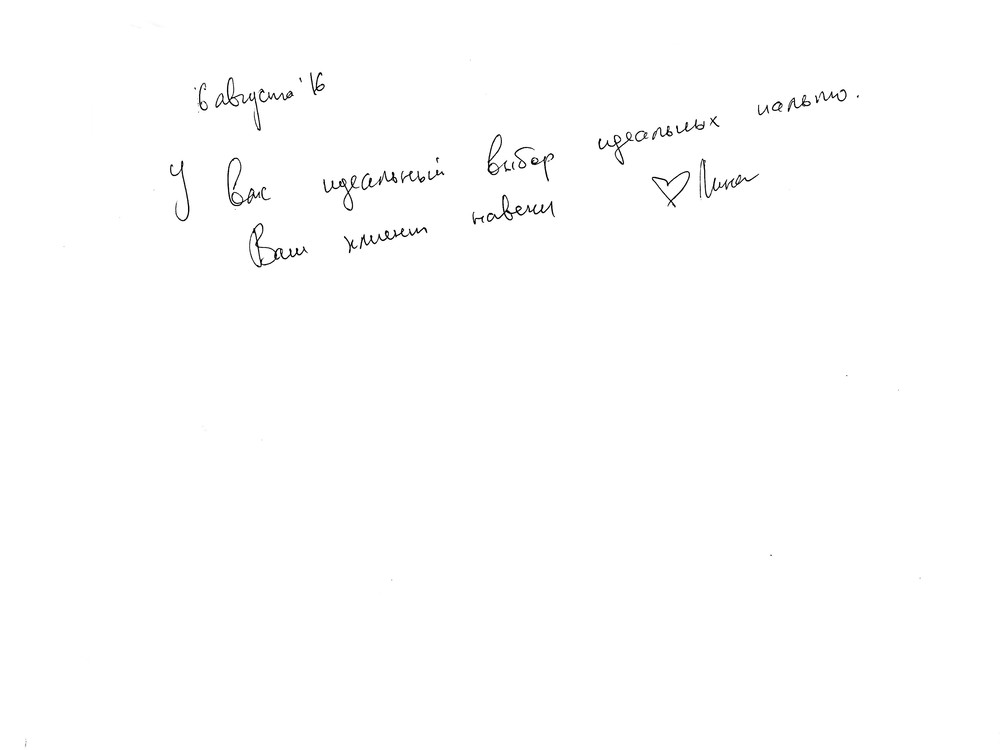 6 августа '16
У Вас идеальный выбор идеальных пальто.
Ваш клиент навеки ♡ Лина